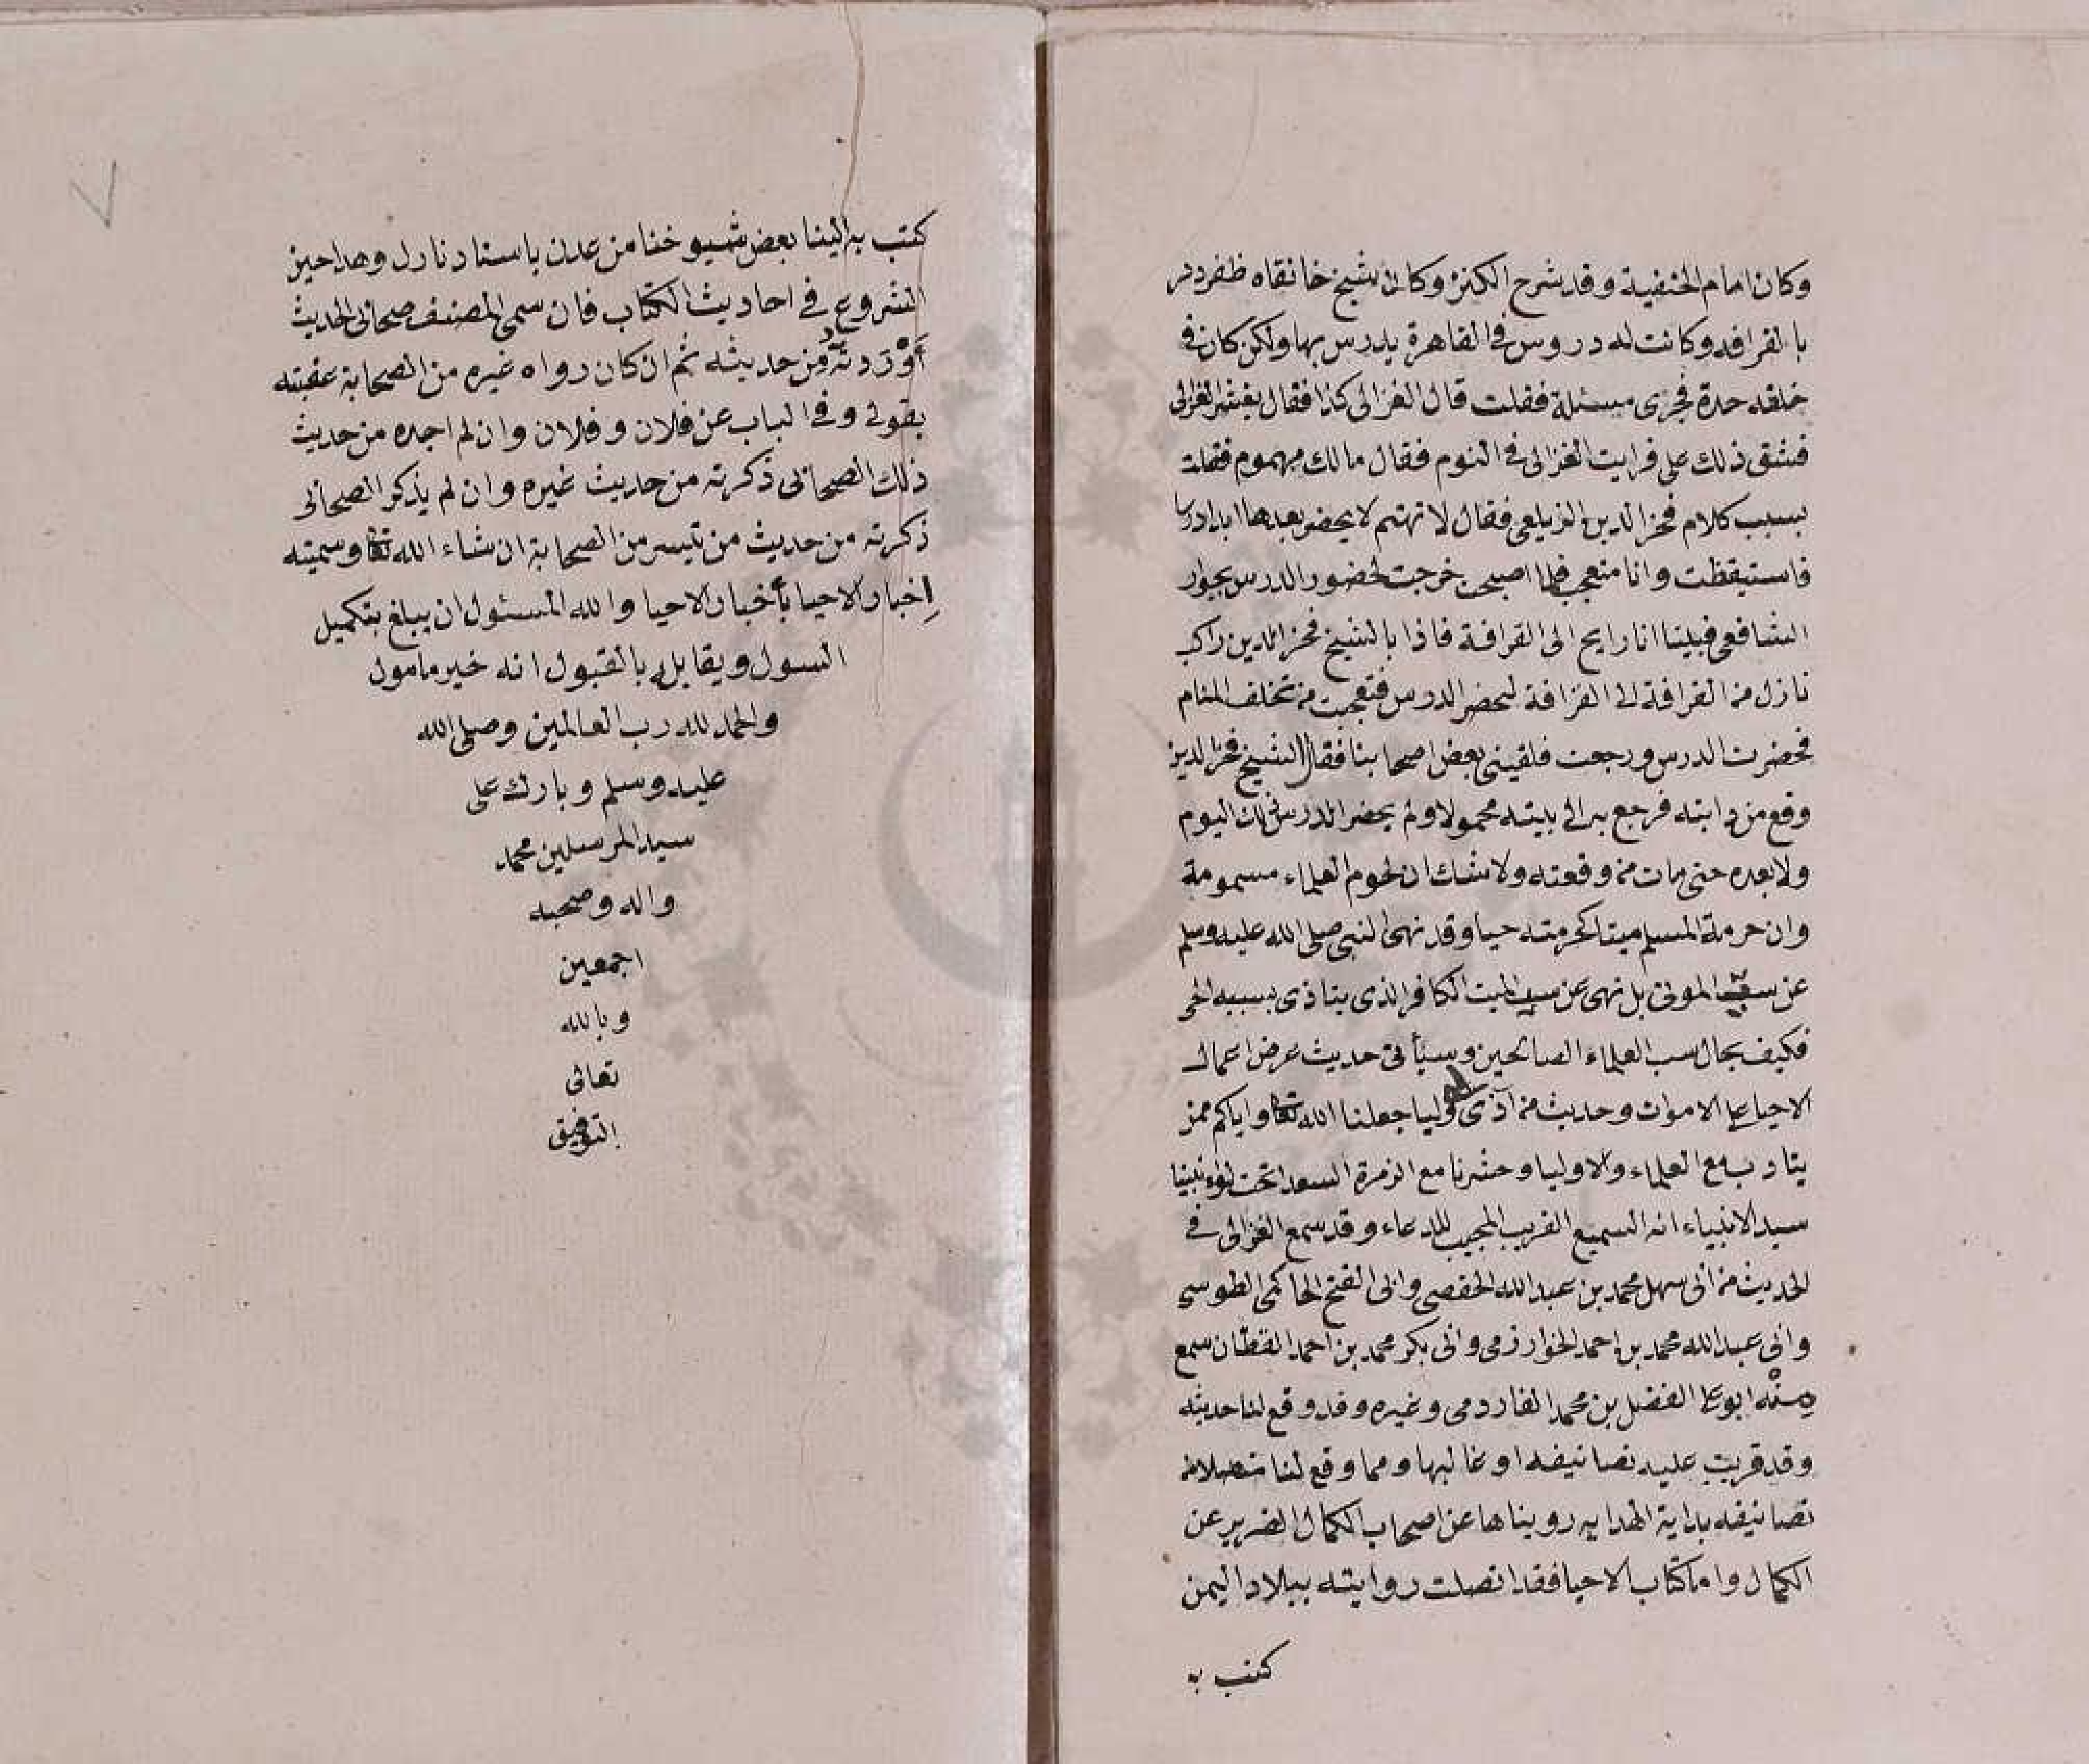 وكان امام الحنفية وقد شرح الكنز وكان شيخ خانقاه طقزدمر
بالقرافه وكانت له دروس في القاهرة يدرس بها ولكن كان في
خلقه حدة فجرى مسئلة فقلت قال الغزالي كذا فقال الغزالي
فشق ذلك علي فرايت الغزالي في النوم فقال مالك مهموم فقلت
بسبب كلام فخر الدين الزيلعي فقال لا تهتم لا يحضر بعدها ابدا درسا
فاستيقظت وانا متعجب فلما اصبحت خرجت لحضور الدرس بجوار
الشافعي فبينا انا رايح الى القرافة فاذا بالشيخ فخر الدين راكب
نازل من القرافة الى القرافة ليحضر الدرس فتعجبت من تخلف المنام
فحضرت الدرس ورجعت فلقيني بعض اصحابنا فقال الشيخ فخر الدين
وقع من دابته فرجع به الى بيته محمولا ولم يحضر الدرس ذلك اليوم
ولا بعده حتى مات من وقعته ولا شك ان لحوم العلماء مسمومة
وان حرمة المسلم ميتا كحرمته حيا وقد نهى النبي صلى الله عليه وسلم
عن سب الموتى بل نهى عن سب الميت الكافر الذي يتاذى بسببه الحي
فكيف بحال سب العلماء الصالحين وسيأتي حديث عرض اعمال
الاحيا على الاموات وحديث من آذى لي وليا جعلنا الله تعالى واياكم ممن
يتادب مع العلماء والاوليا وحشرنا مع الزمرة السعدا تحت لواء نبينا
سيد الانبياء انه السميع القريب المجيب للدعاء وقد سمع الغزالي في
الحديث من ابي سهل محمد بن عبد الله الحفصي وابي الفتح الحاكمي الطوسي
وابي عبد الله محمد بن احمد الخوارزمي وابي بكر محمد بن احمد القطّان سمع
مِنْه ابو على الفضل بن محمد الفاردمي وغيره وقد وقع لنا حديثه
وقد قريت عليه تصانيفه او غالبها ومما وقع لنا متصلا من
تصانيفه بداية الهدايه رويناها عن اصحاب الكمال الضرير عن
الكمال واما كتاب الاحيا فقد اتصلت روايته ببلاد اليمن
كتب به
كتب به الينا بعض شيوخنا من عدن باسناد نازل وهذا حين
الشروع في احاديث الكتاب فان سمى المصنف صحابي الحديث
أَوْرَدتُه من حديثه ثم ان كان رواه غيره من الصحابة عقبته
بقولي وفي الباب عن فلان وفلان وان لم اجده من حديث
ذلك الصحابي ذكرته من حديث غيره وان لم يذكر الصحابي
ذكرته من حديث من تيسر من الصحابة ان شاء الله تعالى وسميته
إخبار الاحيا بأخبار الاحيا والله المسئول ان يبلغ بتكميل
السول ويقابل بالقبول انه خير مامول
والحمد لله رب العالمين وصلى الله
عليه وسلم وبارك على
سيد المرسلين محمد
واله وصحبه
اجمعين
وبالله
تعالى
التوفيق